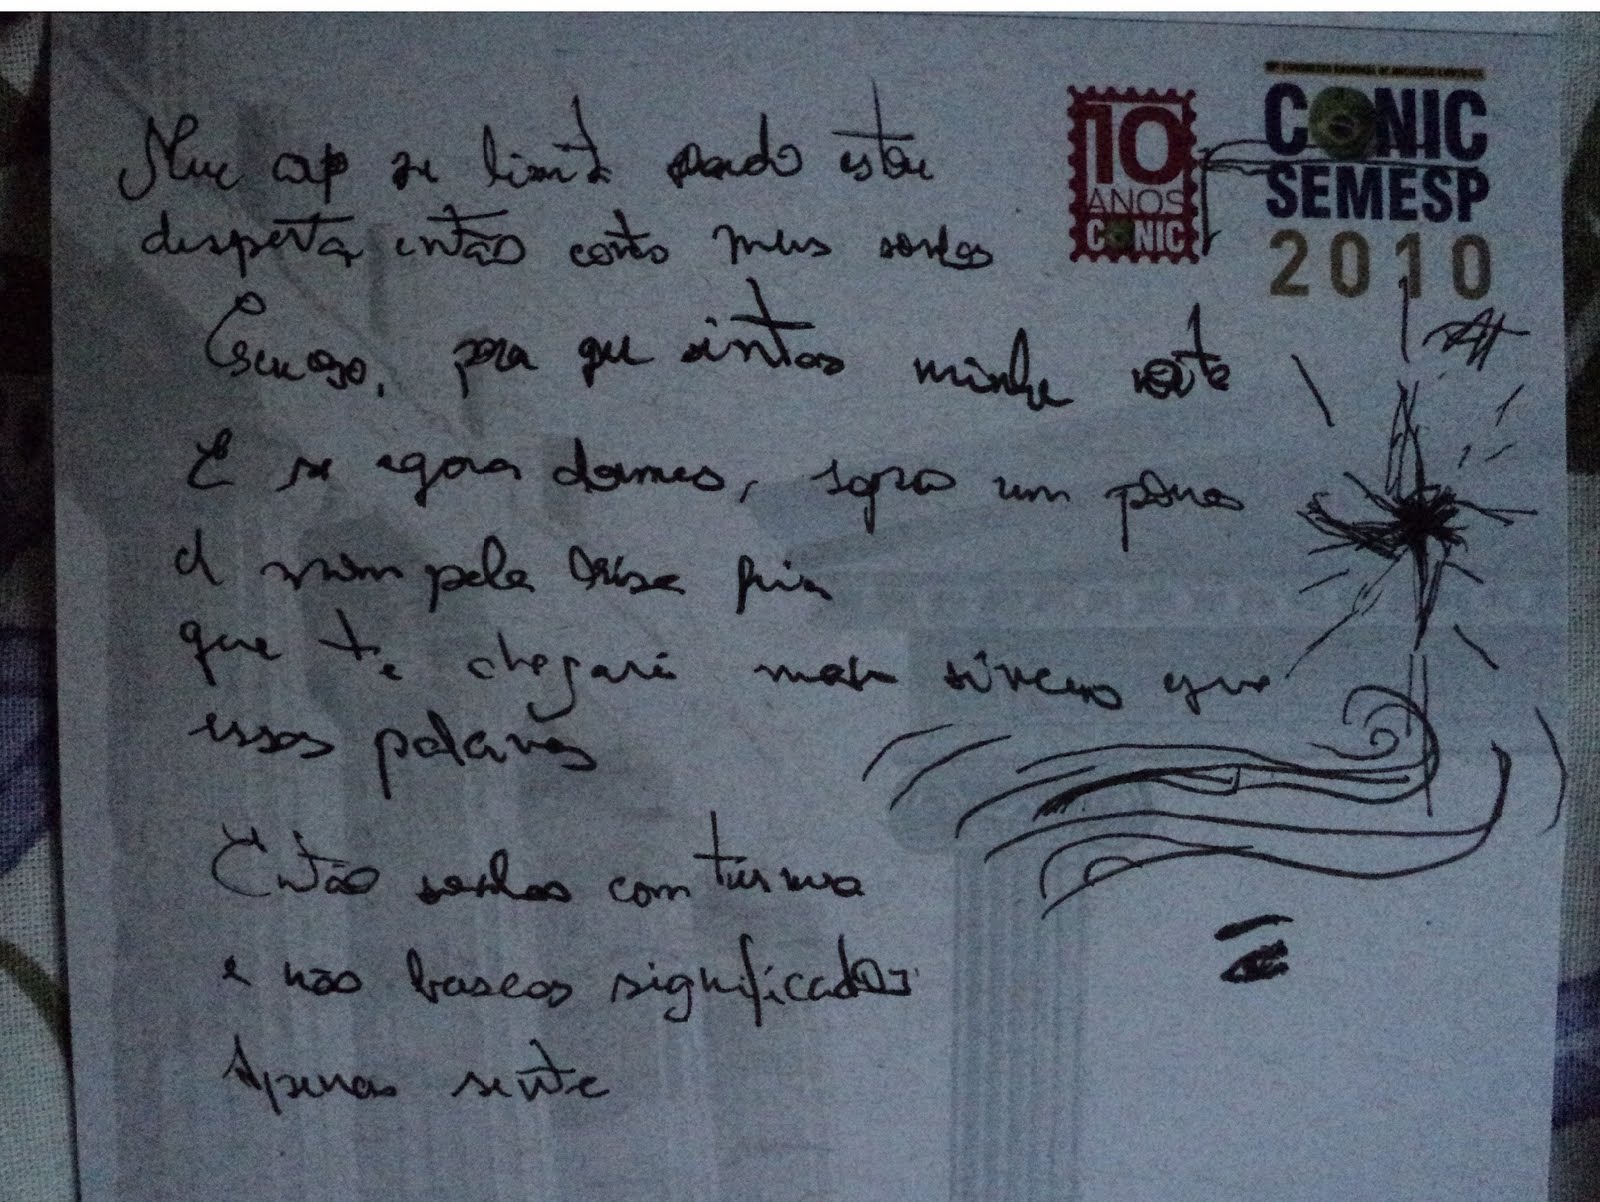 10
ANOS
CONIC
10º CONGRESSO NACIONAL DE INICIAÇÃO CIENTÍFICA
CONIC
SEMESP
2010
se limita estou
desperta, então conto meus sonhos
para que sintas minha noite
E se agora dormes, sopra um pouco
A mim pela brisa fria
que te chegará mais sincero que
essas palavras
Então sonhas com ternura
e não buscas significados
Apenas sente